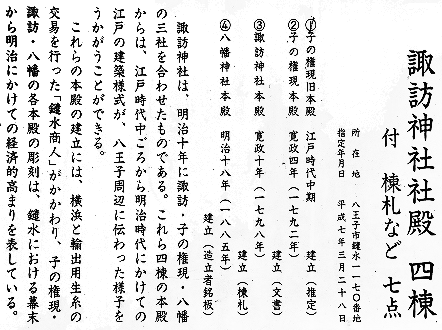 諏訪神社社殿 四棟
付 棟札など 七点
所在地 八王子市鑓水一一七〇番地
指定年月日 平成七年三月二十八日
①子の権現旧本殿 江戸時代中期 建立(推定)
②子の権現本殿 寛政四年(一七九二年) 建立(文書)
③諏訪神社本殿 寛政十年(一七九八年) 建立(棟札)
④八幡神社本殿 明治十八年(一八八五年) 建立(造立者銘板)
諏訪神社は、明治十年に諏訪・子の権現・八幡
の三社を合わせたものである。これら四棟の本殿
からは、江戸時代中ごろから明治時代にかけての
江戸の建築様式が、八王子周辺に伝わった様子を
うかがうことができる。
これらの本殿の建立には、横浜と輸出用生糸の
交易を行った「鑓水商人」がかかわり、子の権現・
諏訪・八幡の各本殿の彫刻は、鑓水における幕末
から明治にかけての経済的高まりを表している。